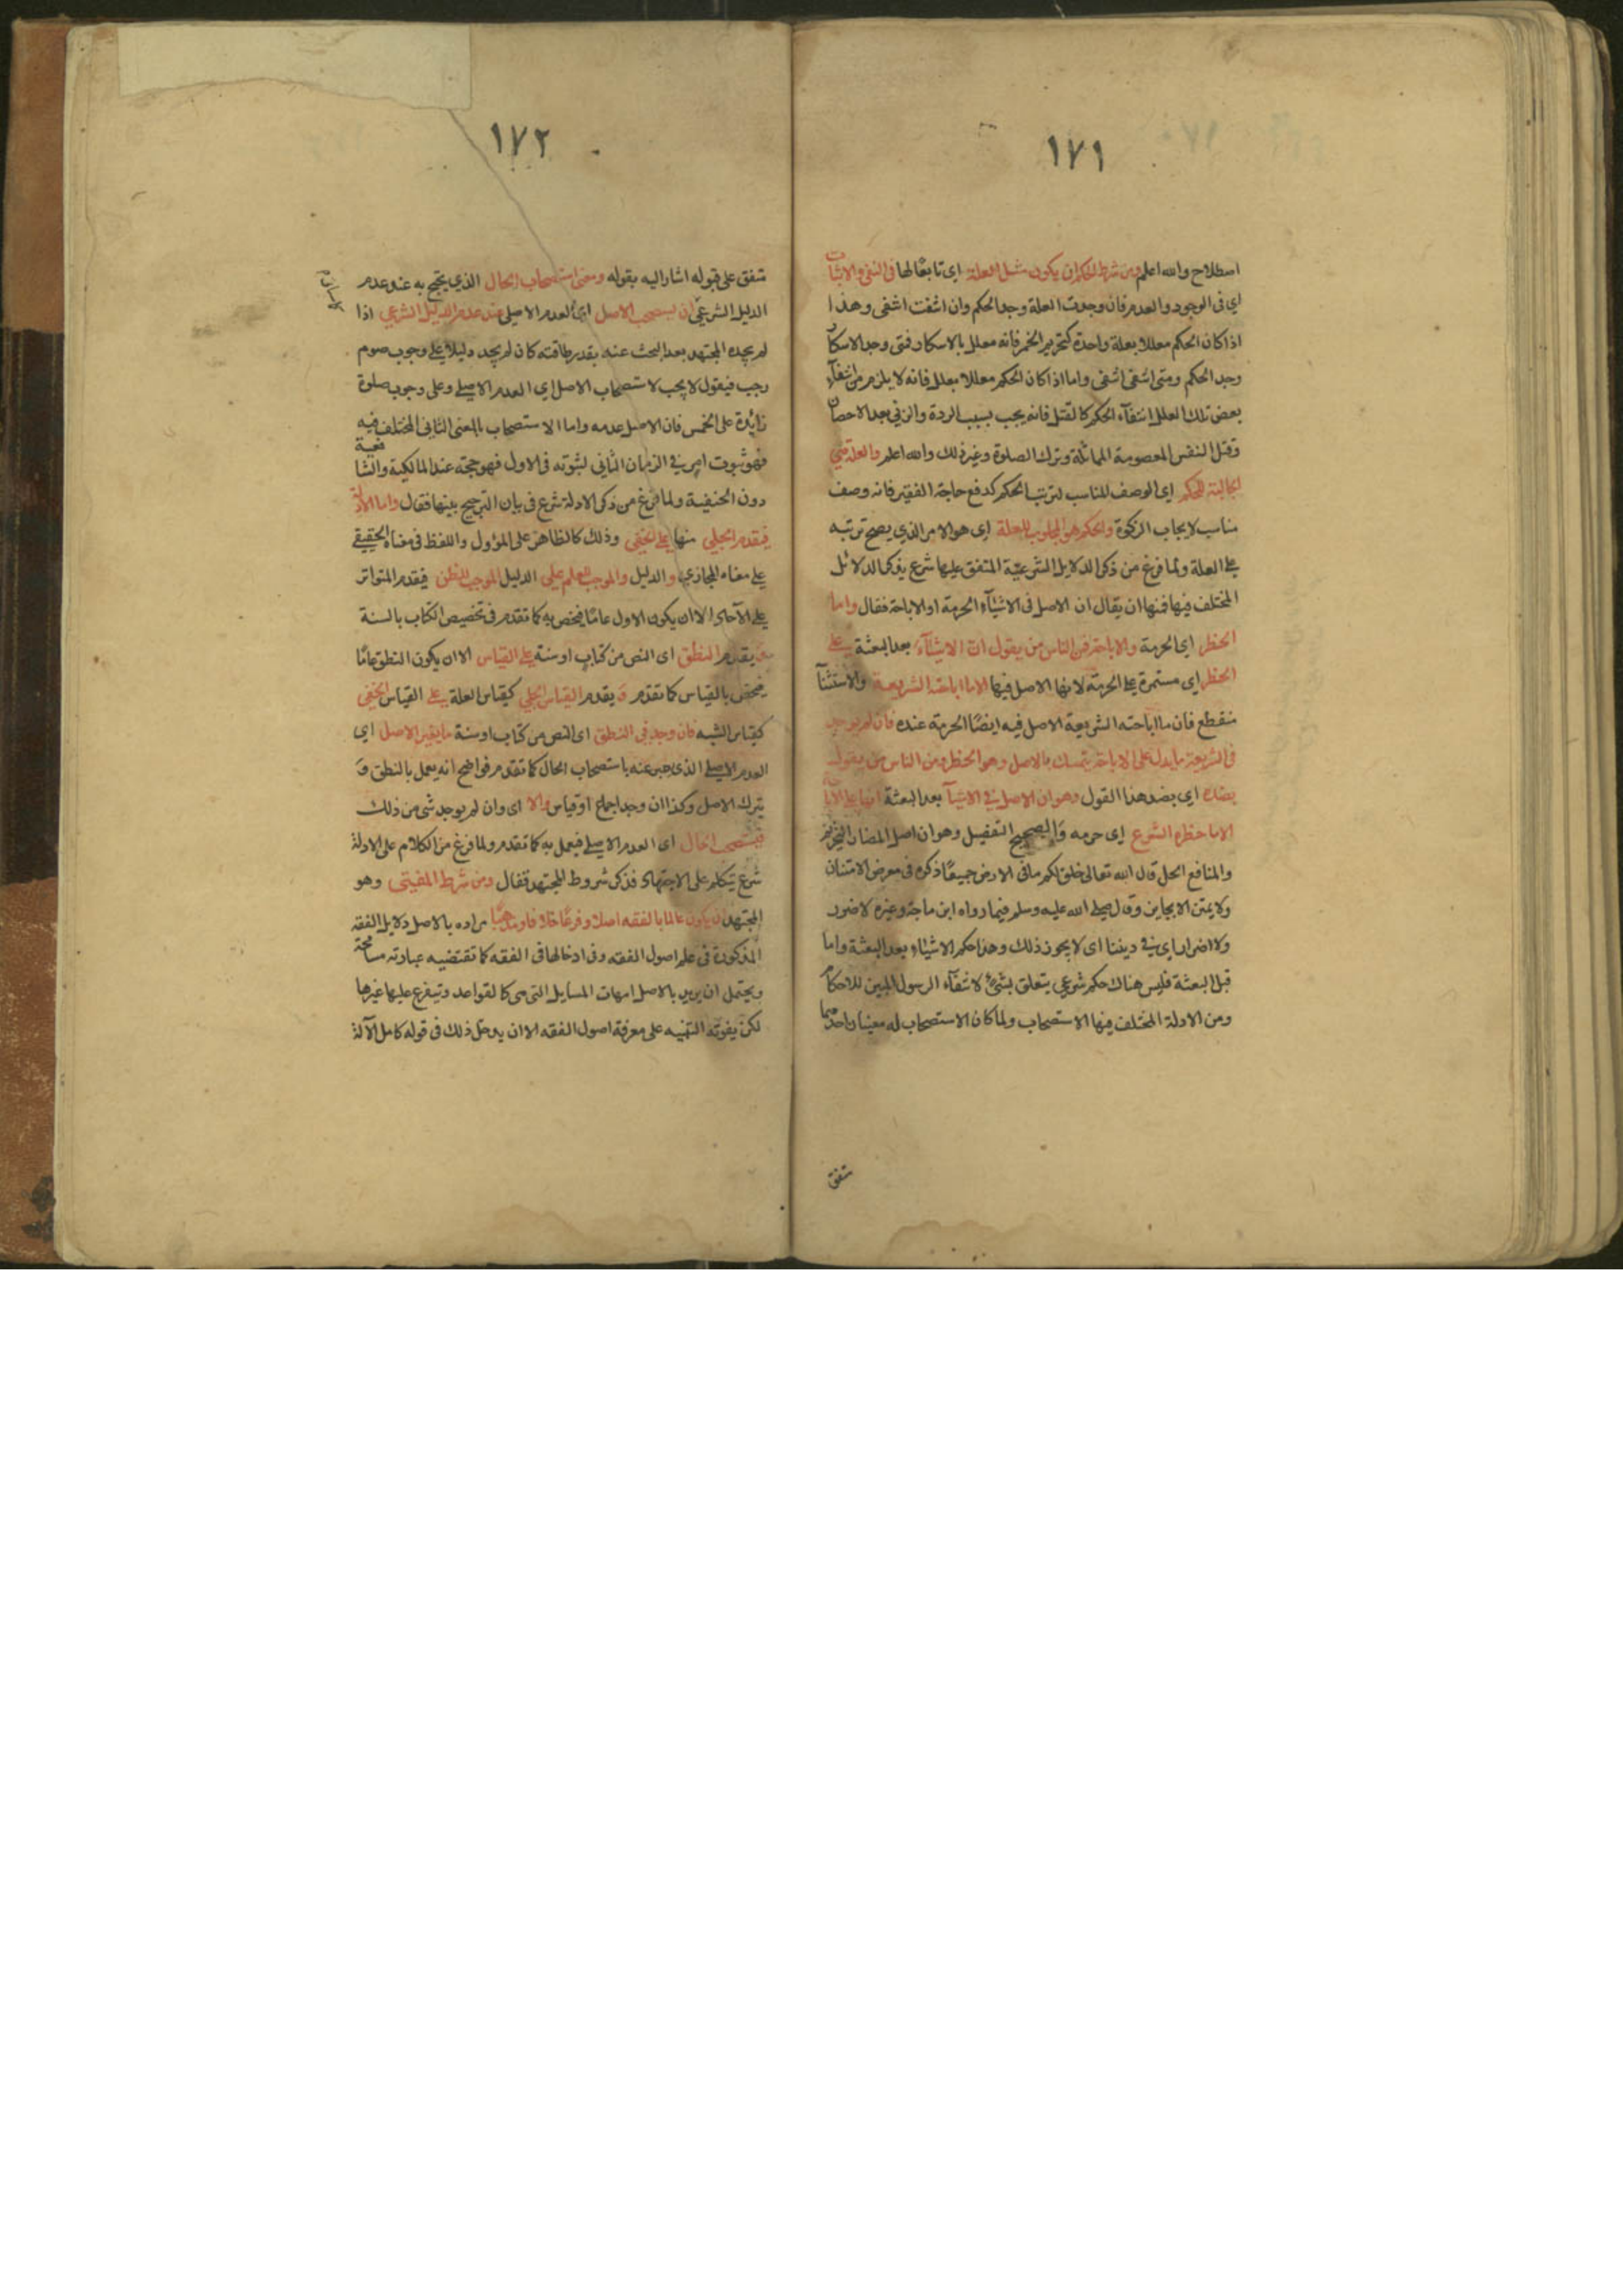 ١٧١
اصطلاح والله اعلم ومن شرط الحكم ان يكون مثل العلة اي تابعًا لها في النفي والاثبات
اي في الوجود والعدم فان وجدت العلة وجد الحكم وان انتفت انتفى وهذا
اذا كان الحكم معللا بعلة واحدة كتحريم الخمر فانه معلل بالاسكار فمتى وجد الاسكار
وجد الحكم ومتى انتفى انتفى واما اذا كان الحكم معللا بعلل فانه لا يلزم من انتفآء
بعض تلك العلل انتفآء الحكم كالقتل فانه يجب بسبب الردة والزني بعد الاحصان
وقتل النفس المعصومة المماثلة وترك الصلوة وغير ذلك والله اعلم والعلة هي
الجالبة للحكم اي الوصف المناسب لترتيب الحكم كدفع حاجة الفقير فانه وصف
مناسب لايجاب الزكوة والحكم هو المجلوب للعلة اي هو الامر الذي يصح ترتبه
على العلة ولما فرغ من ذكر الدلايل الشرعية المتفق عليها شرع يذكر الدلائل
المختلف فيها فمنها ان يقال ان الاصل في الاشيآء الحرمة او الاباحة فقال واما
الحظر اي الحرمة والاباحة فمن الناس من يقول ان الاشيآء بعد البعثة على
الحظر اي مستمرة على الحرمة لانها الاصل فيها الا ما اباحته الشريعة والاستثنآ
منقطع فان ما اباحته الشريعة الاصل فيه ايضًا الحرمة عنده فان لم يوجد
في الشريعة ما يدل على الاباحة يتمسك بالاصل وهو الحظر ومن الناس من يقول
بضده اي بضد هذا القول وهو ان الاصل في الاشيآ بعد البعثة انها على الاباحة
الا ما حظره الشرع اي حرمه والصحيح التفصيل وهو ان اصل المضار التحريم
والمنافع الحل قال الله تعالى خلق لكم ما في الارض جميعًا ذكره في معرض الامتنان
ولا يمتن الا بجايز وقال صلى الله عليه وسلم فيما رواه ابن ماجة وغيره لا ضرر
ولا اضرار اي في ديننا اى لا يجوز ذلك وهذا حكم الاشياء بعد البعثة واما
قبل البعثة فليس هناك حكم شرعي يتعلق بشئ لانتفآء الرسول المبين للاحكام
ومن الادلة المختلف فيها الاستصحاب ولما كان الاستصحاب له معنيان احدهما
متفق
١٧٢
متفق على قبوله اشار اليه بقوله ومعنى استصحاب الحال الذي يحتج به عند عدم
الدليل الشرعي ان يستصحب الاصل اي العدم الاصلي عند عدم الدليل الشرعي اذا
لم يجده المجتهد بعد البحث عنه بقدر طاقته كان لم يجد دليلا على وجوب صوم
رجب فيقول لا يجب لاستصحاب الاصل اي العدم الاصلي وعلى وجوب صلوة
زايدة على الخمس فان الاصل عدمه واما الاستصحاب بالمعنى الثاني المختلف فيه
فهو ثبوت امر في الزمان الثاني لثبوته في الاول فهو حجة عند المالكية والشافعية
دون الحنفية ولما فرغ من ذكر الادلة شرع في بيان الترجيح بينها فقال واما الادلة
فيقدم الجلي منها على الخفي وذلك كالظاهر على المؤول واللفظ في معناه الحقيقي
على معناه المجازي والدليل والموجب للعلم على الدليل الموجب للظن فيقدم المتواتر
على الآحاد الا ان يكون الاول عامًا فيخص به كما تقدم في تخصيص الكتاب بالسنة
ويقدم النطق اى النص من كتاب او سنة على القياس الا ان يكون النطق عامًا
فيخص بالقياس كما تقدم وَيقدم القياس الجلي كقياس العلة على القياس الخفي
كقياس الشبه فان وجد في النطق اى النص من كتاب او سنة ما يغير الاصل اي
العدم الاصلي الذي عبر عنه باستصحاب الحال كما تقدم فواضح انه يعمل بالنطق وَ
يترك الاصل وكذا ان وجد اجماع او قياس والا اى وان لم يوجد شئ من ذلك
فيستصحب الحال اى العدم الاصلي فيعمل به كما تقدم ولما فرغ من الكلام على الادلة
شرع يتكلم على الاجتهاد فذكر شروط المجتهد فقال ومن شرط المفتي وهو
المجتهد ان يكون عالما بالفقه اصلا وفرعًا خلافا ومذهبًا مراده بالاصل دلايل الفقه
المذكورة في علم اصول الفقه وفي ادخالها في الفقه كما تقتضيه عبارته مسامحة
ويحتمل ان يريد بالاصل امهات المسايل التي هي كالقواعد ويتفرع عليها غيرها
لكن يفوته التنبيه على معرفة اصول الفقه الا ان يدخل ذلك في قوله كامل الآلة